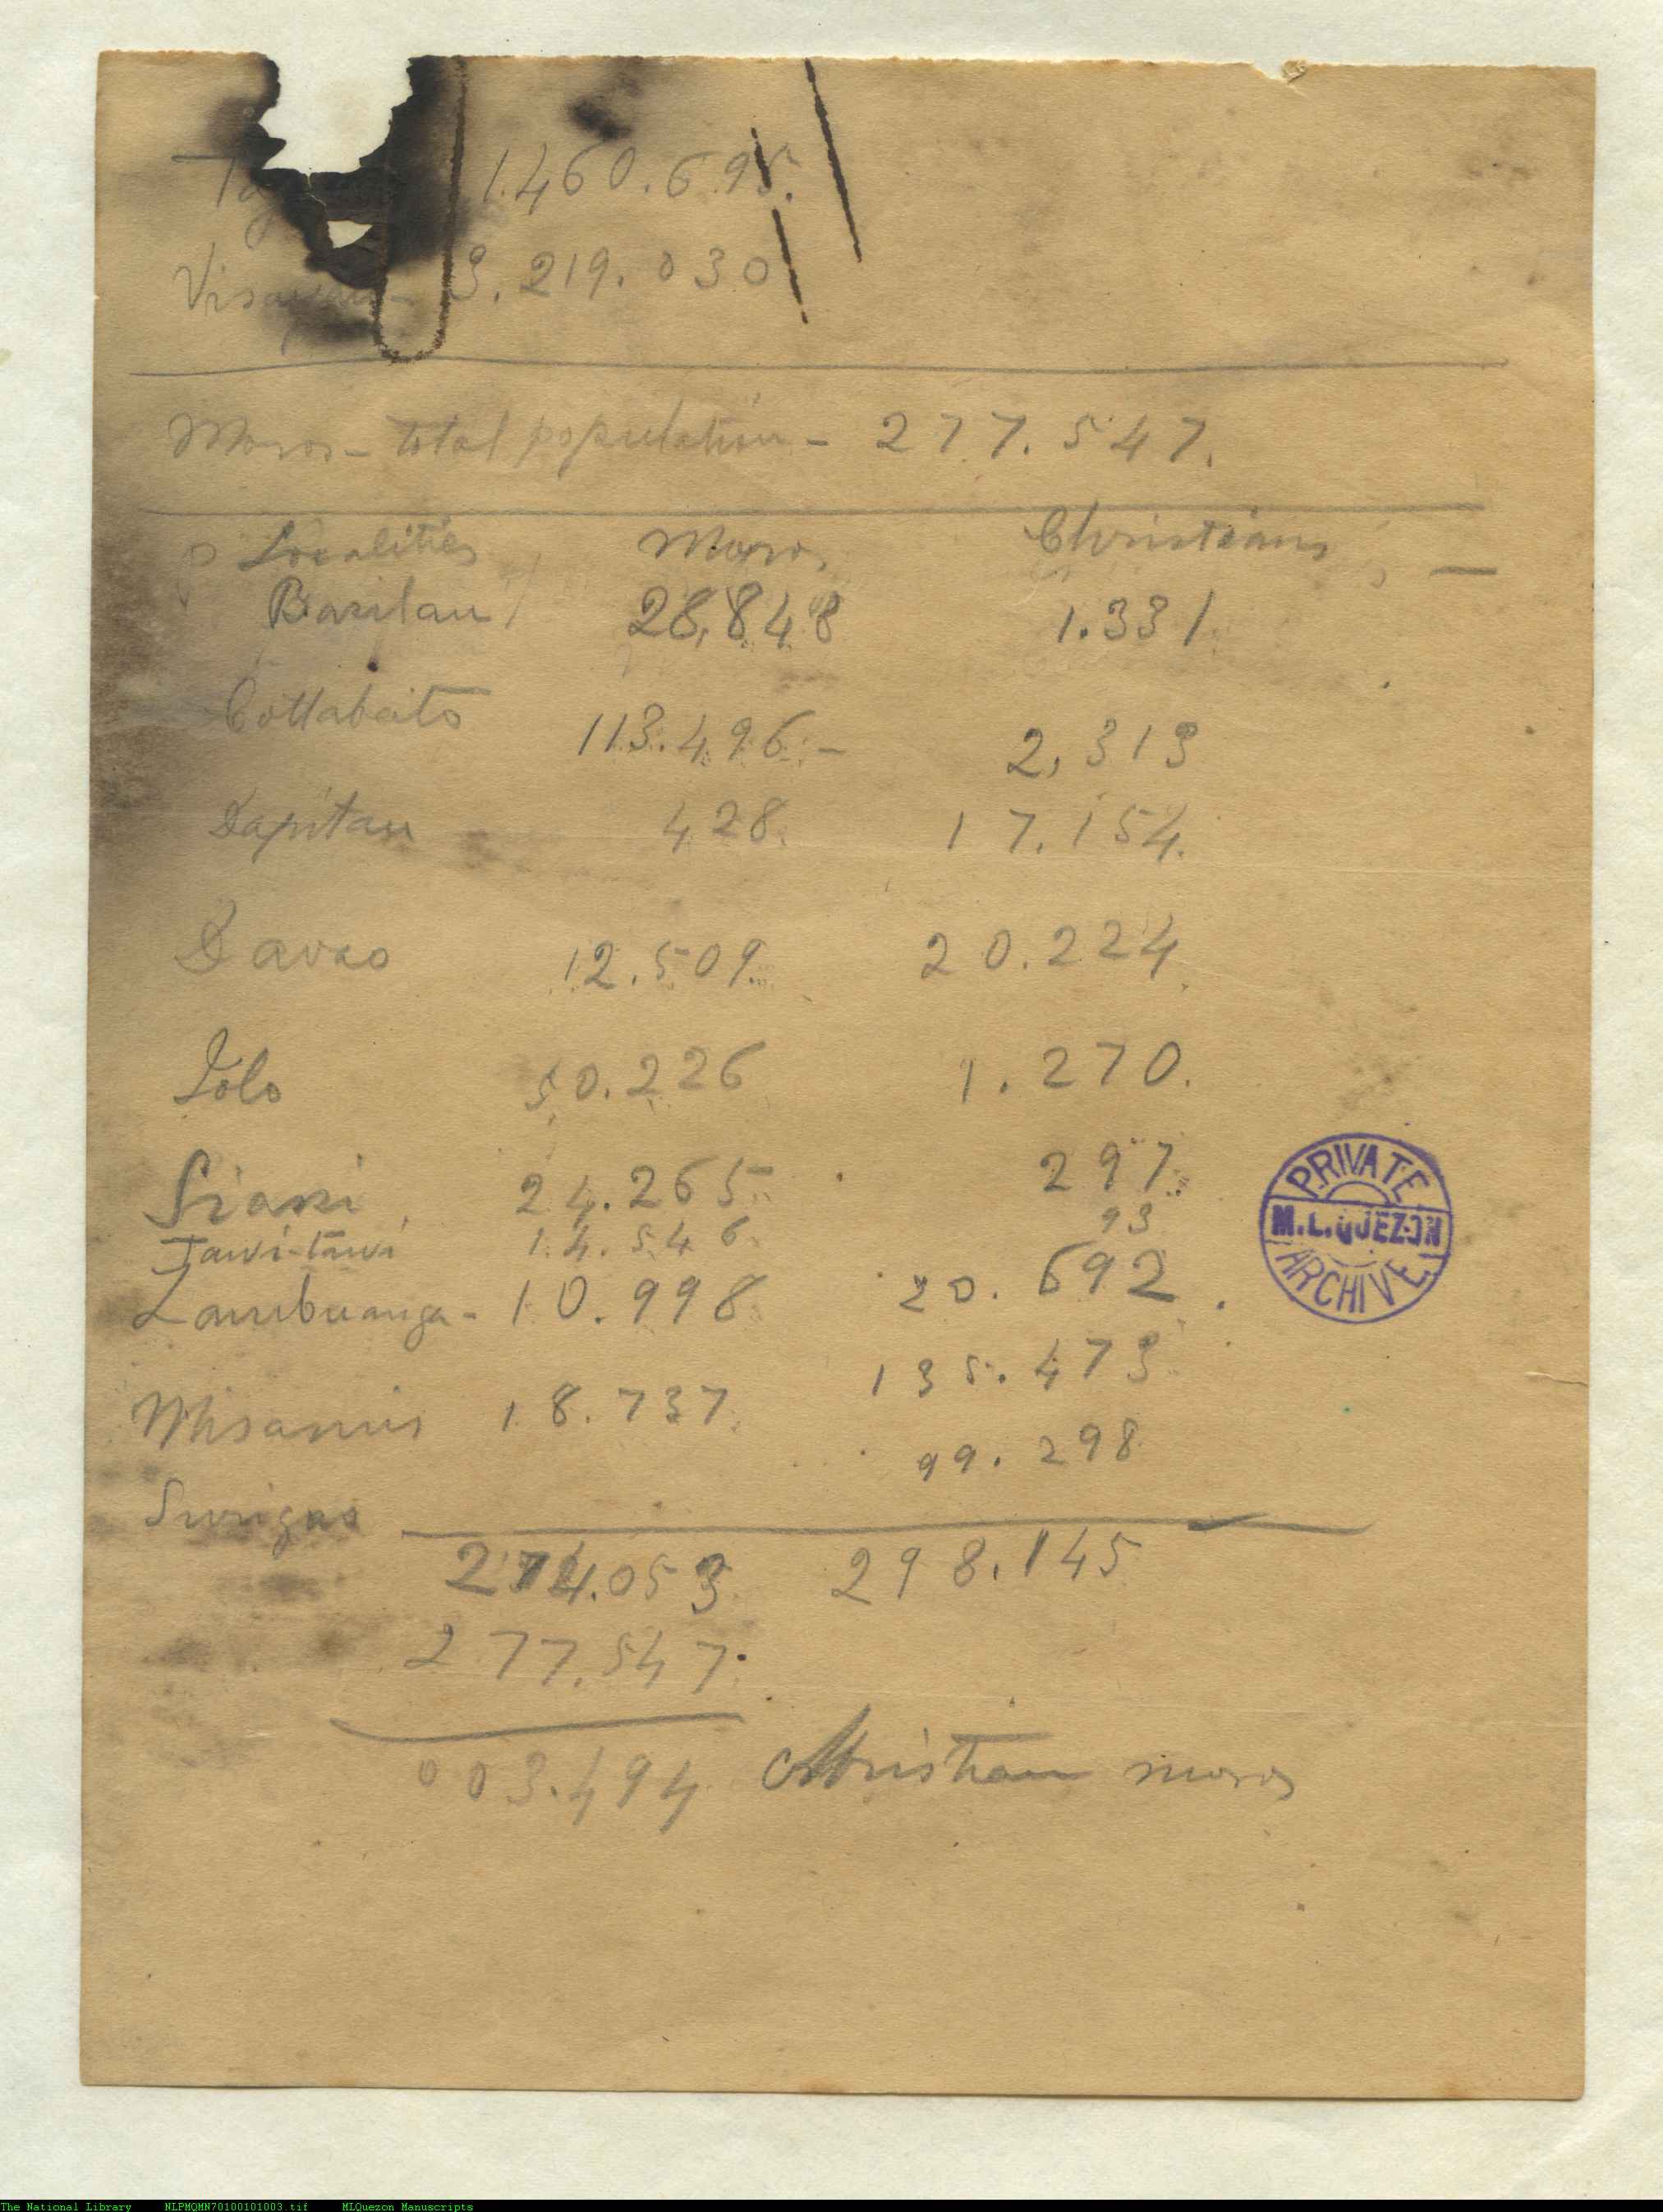 1.460.695.
Visayan - 3.219.030
Moros - total population - 277.547.
Localities Moros Christians
Basilan 28,848 1.331
Cottabato 113.496. - 2,313
Dapitan 428. 17.154.
Davao 12.509. 20.224
Jolo 50.226 1.270.
Siassi 24.265 297.
Tawi-tawi 14.546 93
Zambuanga - 10.998 20.692.
Misamis 18.737. 135.473
99.298
Surigao
274.053 298.145
277.547.
003.494 Christian moros
PRIVATE
M.L.QUEZON
ARCHIVE
The National Library NLPMQMN70100101003.tif MLQuezon Manuscripts